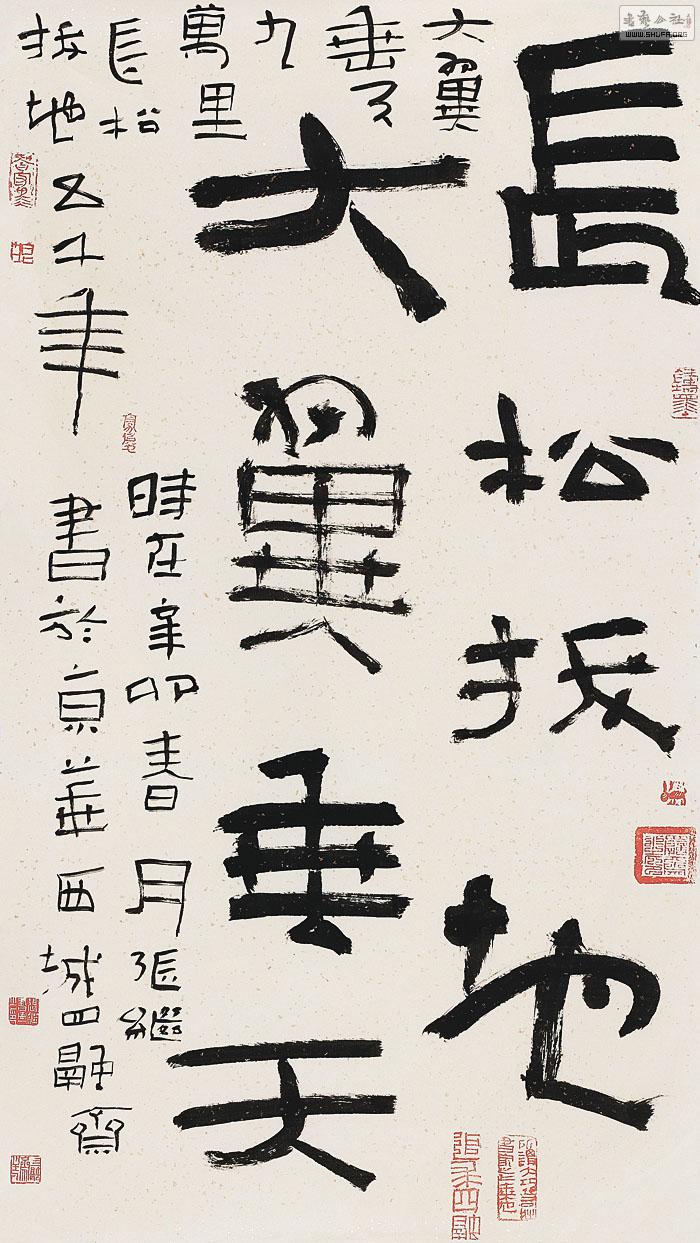 長松拔地
大翼垂天
大翼
垂天
九
萬里
長松
拔地五千年
時在辛卯春月張繼
書於京華西城四融齋
书艺公社
WWW.SHUFA.ORG